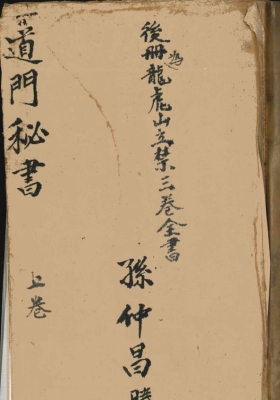 後冊為龍虎山立禁三卷全書
孫仲昌
道門秘書
上卷